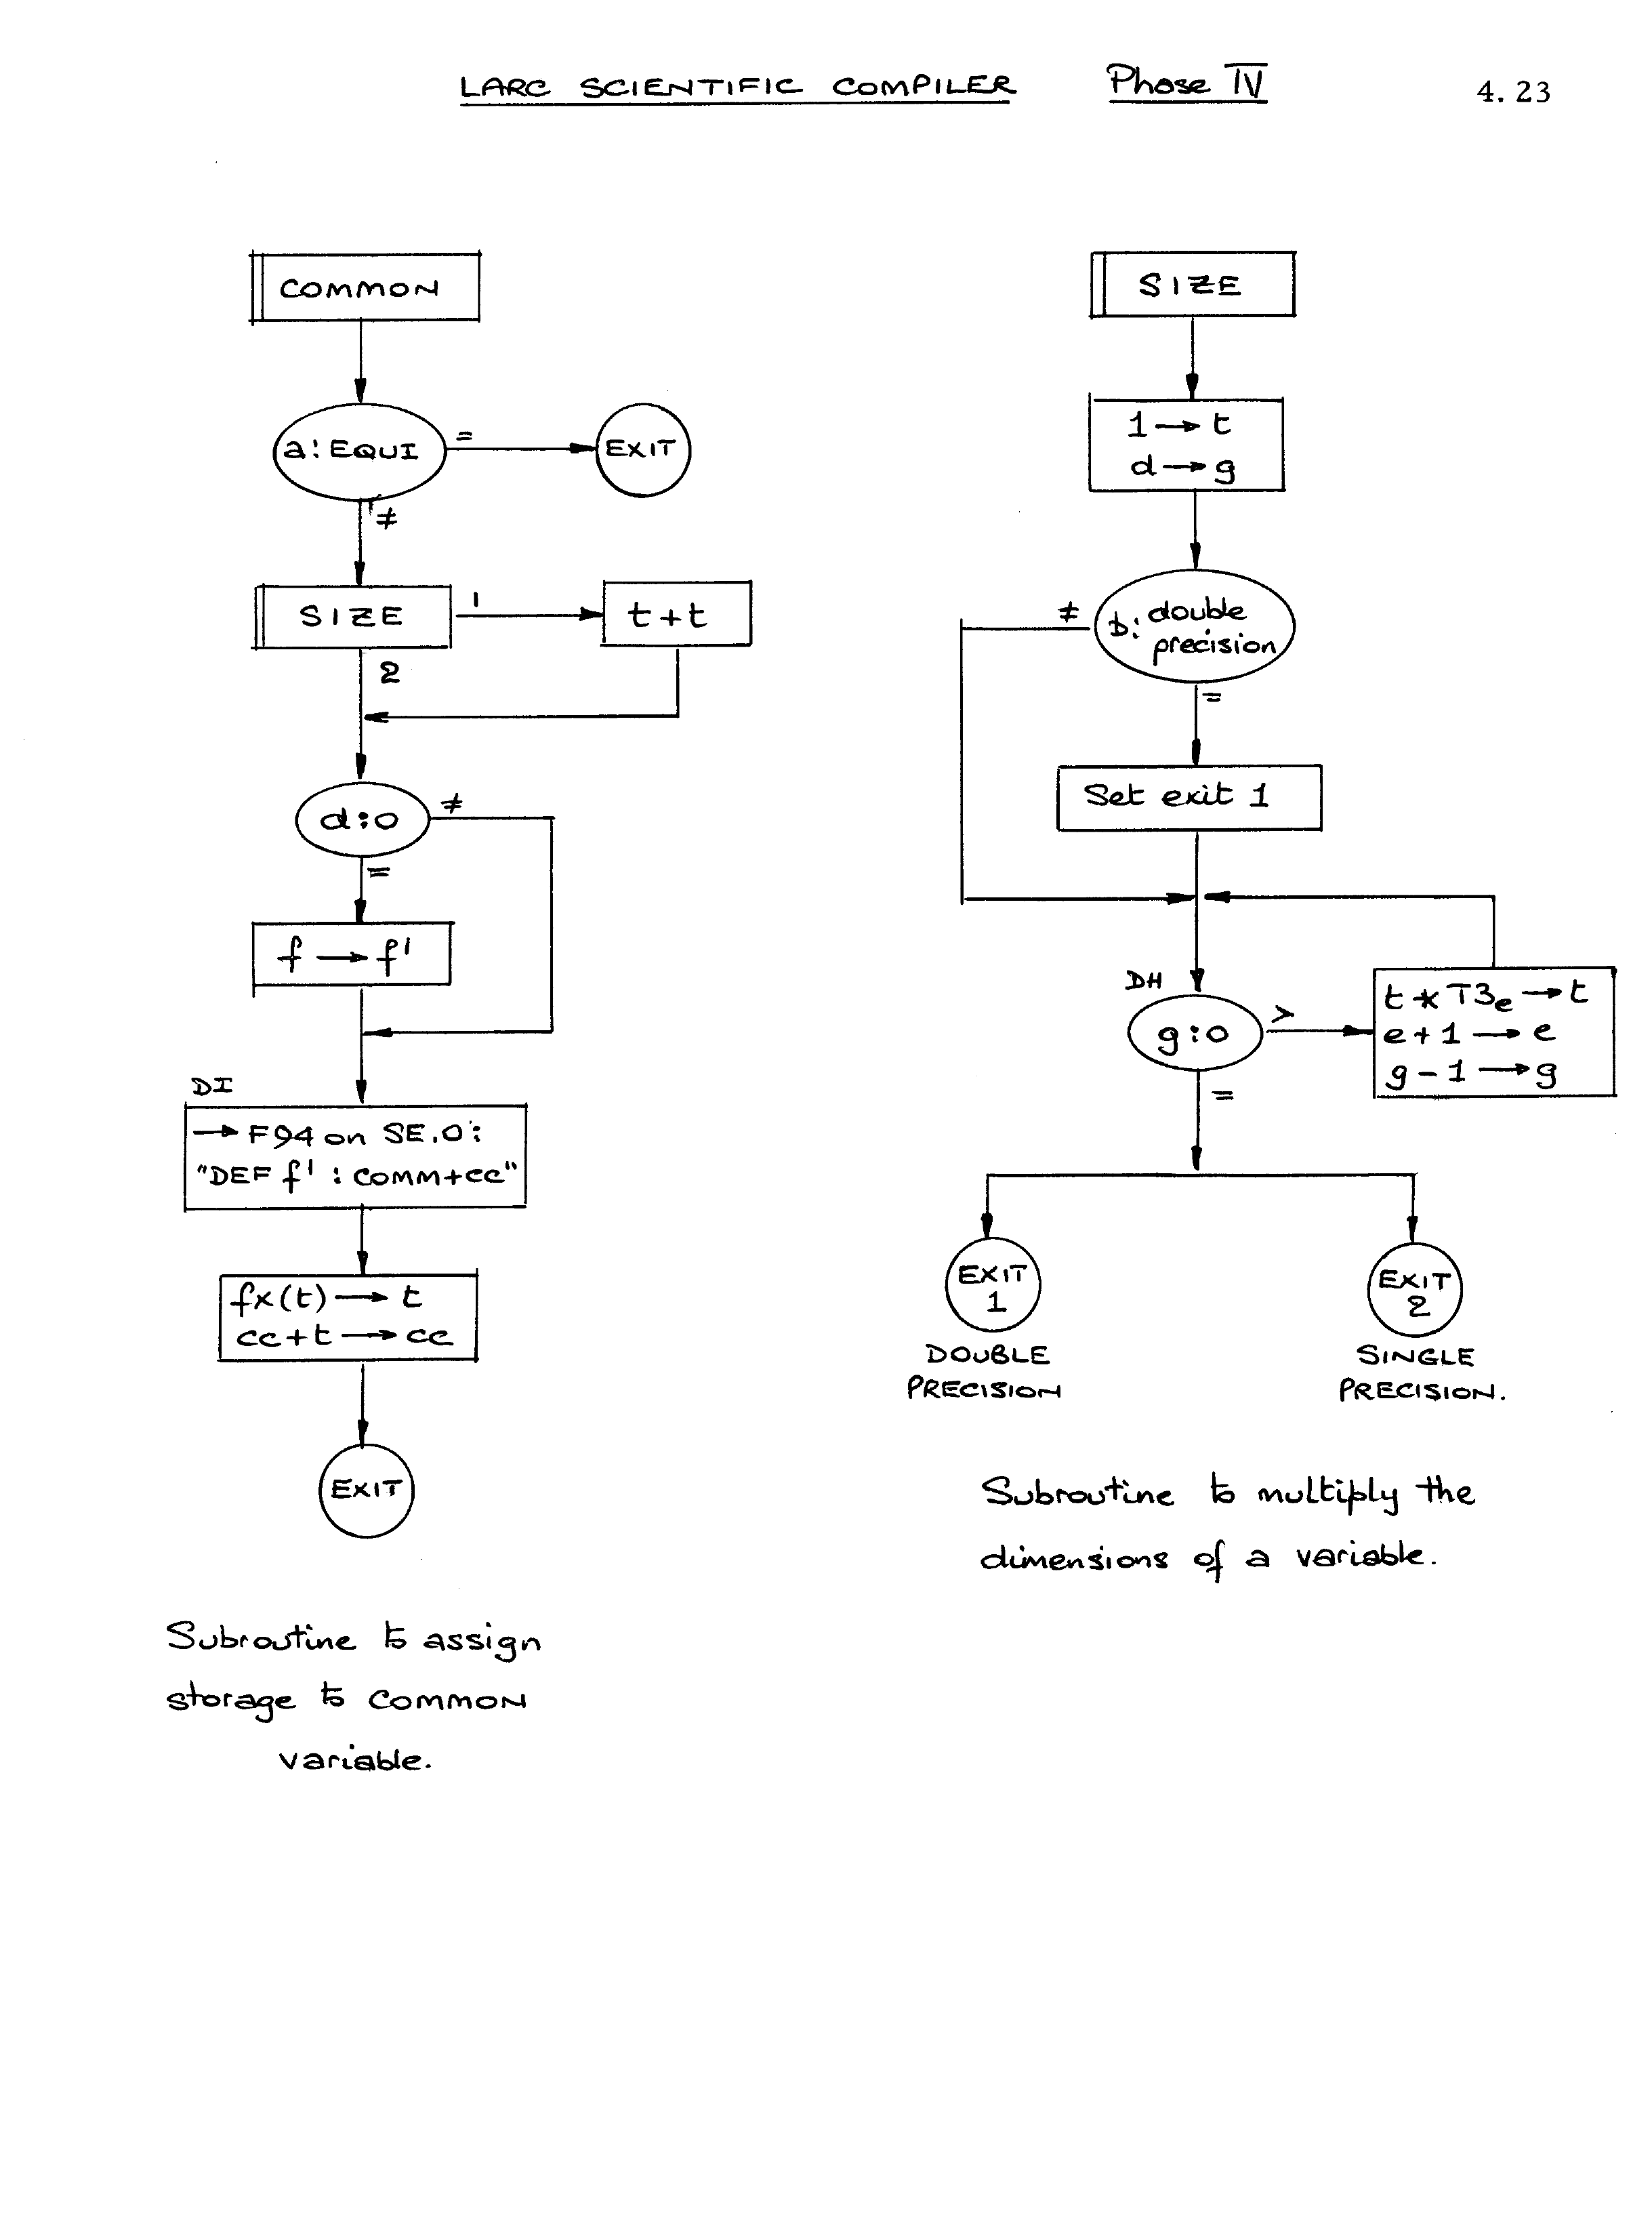 LARC SCIENTIFIC COMPILER Phase IV 4.23
COMMON
a:EQUI
=
EXIT
≠
SIZE
1
t+t
2
d:0
≠
=
f → f'
DI
→ F94 on SE.0:
"DEF f' : COMM+CC"
fx(t) → t
cc+t → cc
EXIT
Subroutine to assign
storage to COMMON
variable.
SIZE
1 → t
d → g
≠
b: double
precision
=
Set exit 1
DH
g:0
>
t * T3e → t
e+1 → e
g-1 → g
=
EXIT
1
DOUBLE
PRECISION
EXIT
2
SINGLE
PRECISION.
Subroutine to multiply the
dimensions of a variable.